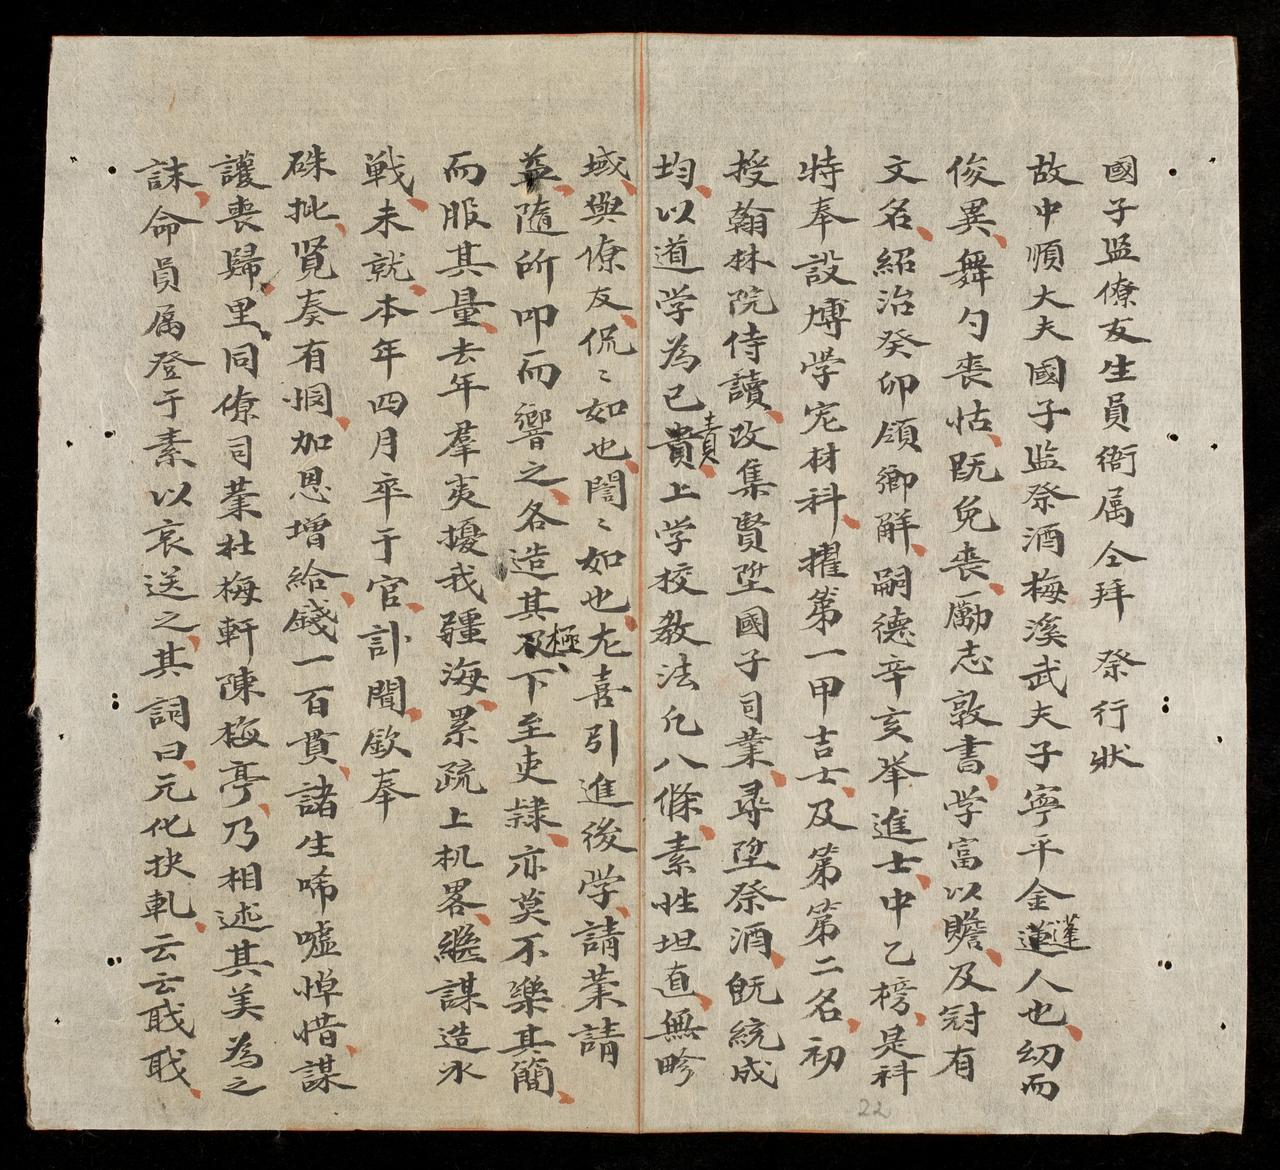 國子监僚友生員衙属仝拜 祭行狀
故中順大夫國子监祭酒梅溪武夫子寜平金蓮蓬人也、幻而
俊異、舞勺丧怙、既免丧、励志敦書、学富以贍、及冠有
文名、紹治癸卯領鄉解、嗣德辛亥举進士、中乙榜、是科
特奉設博学宏材科、擢第一甲吉士、及第第二名、初
授翰林院侍讀、改集賢陞國子司業、尋陞祭酒、既統成
均、以道学為己貴責、上学校教法凡八條、素性坦直、無畛
域、與僚友、侃〻如也、誾〻如也、尤喜引進後学、請業請
益、隨所叩而響之、各造其極、下至吏隷、亦莫不樂其簡、
而服其量、去年羣夷擾我疆海、累疏上机畧、繼謀造水
戦、未就、本年四月卒于官、訃聞、欽奉
硃批、覧奏有恫、加恩增給、錢一百貫、諸生唏嘘悼惜、謀
護丧歸里、同僚司業杜梅軒陳梅亭、乃相述其美為之
誄、命員属登于素以哀送之、其詞曰、元化抉軋、云云戝戝、
22